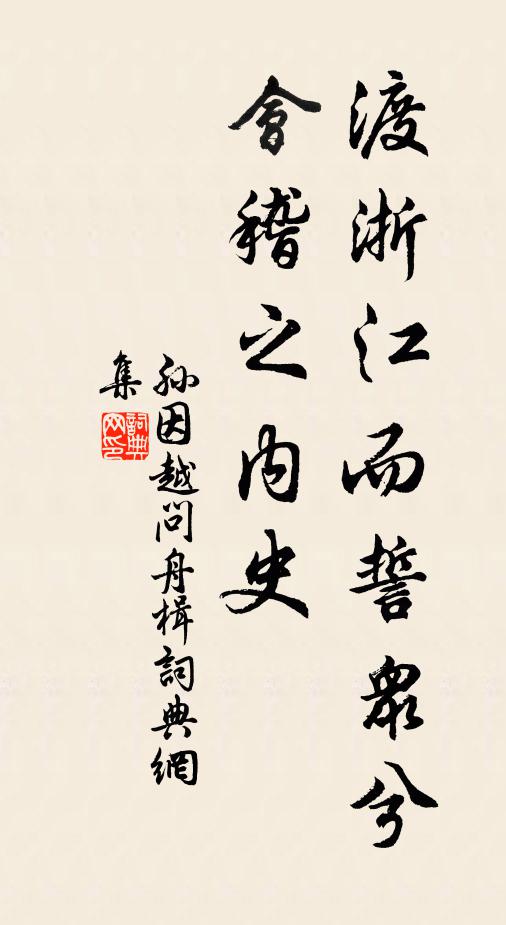 渡浙江而誓眾兮
會稽之内史
孫因越問舟楫詞典網
集
詞典
网印